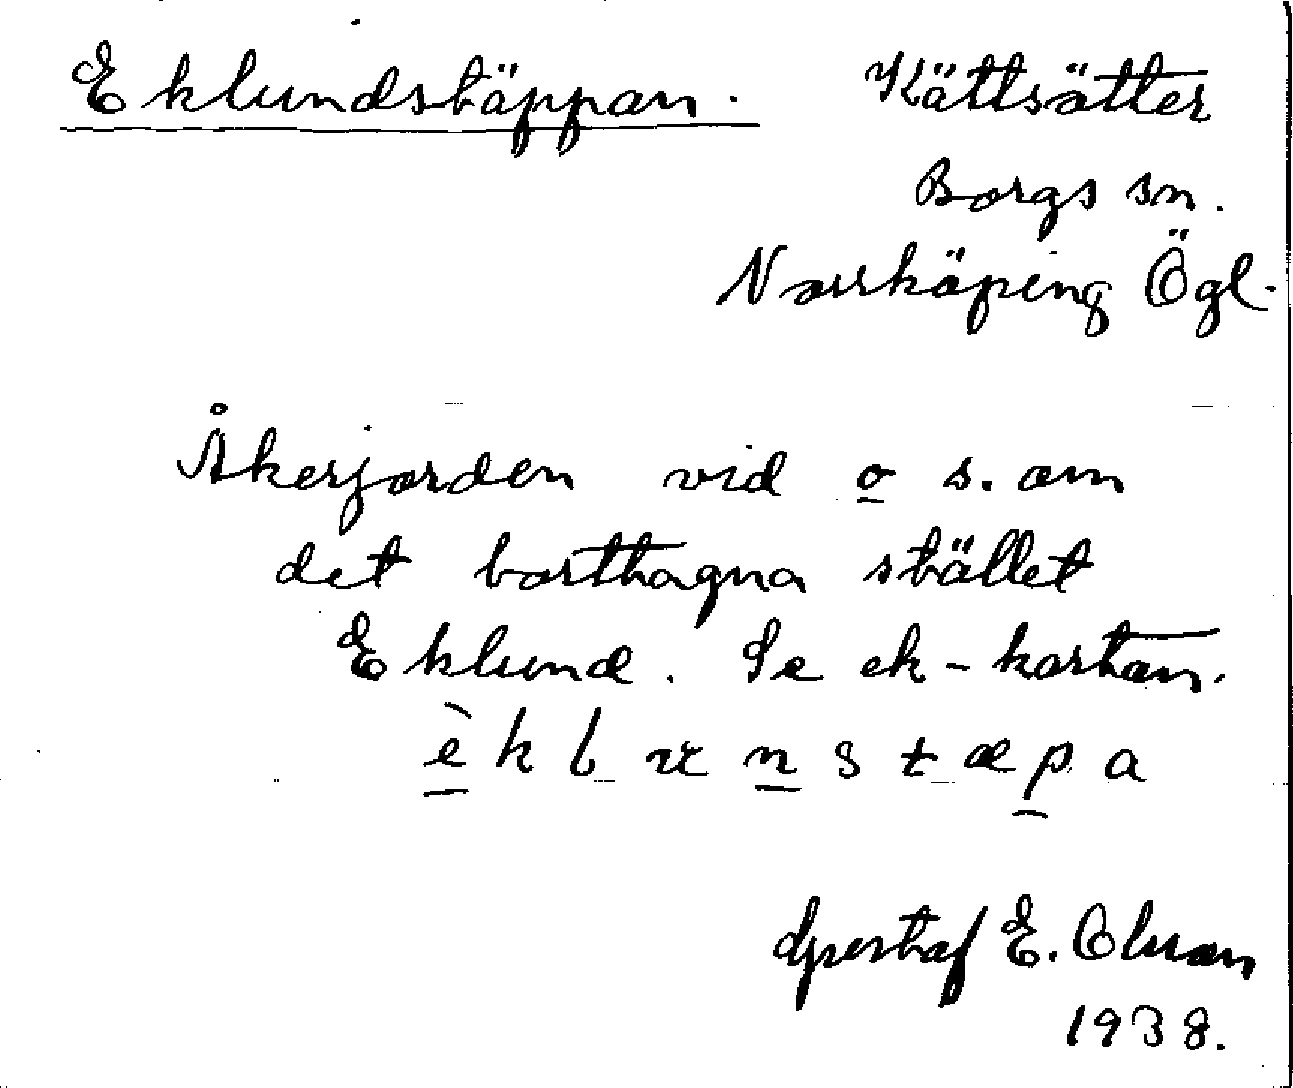 Eklundstäppan. Kättsätter
Borgs sn.
Norrköping Ögl.
Åkerjorden vid o s. om
det borttagna stället
Eklund. Se ek-kartan.
è k l u n s t æ p a
Gustaf E. Olsson
1938.